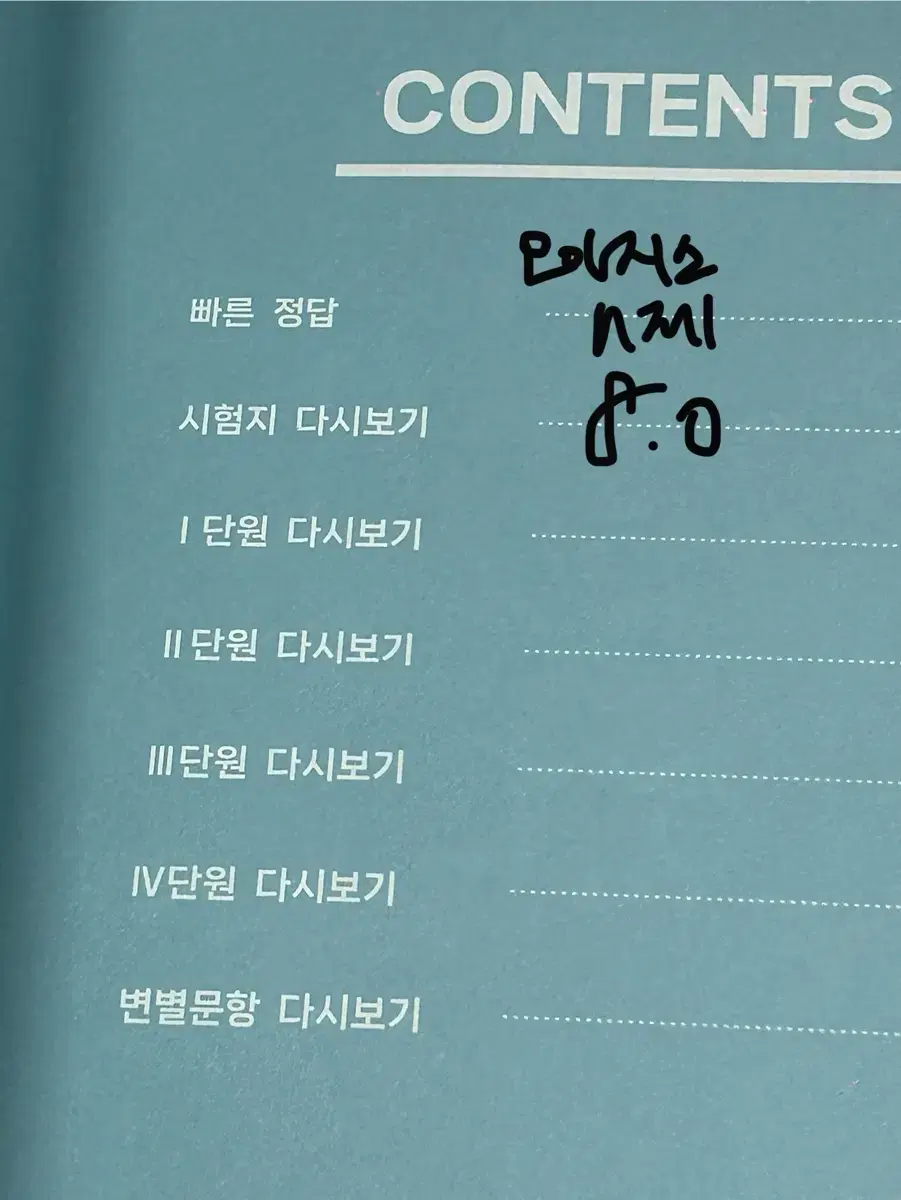 CONTENTS
오아시스
n제
8.0
빠른 정답
시험지 다시보기
I 단원 다시보기
II단원 다시보기
III단원 다시보기
IV단원 다시보기
변별문항 다시보기